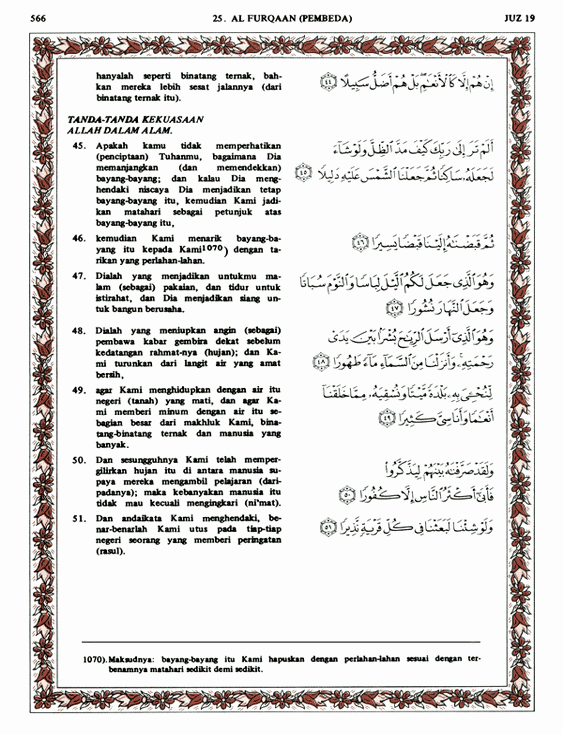 566
25. AL FURQAAN (PEMBEDA)
JUZ 19
hanyalah seperti binatang ternak, bah-
kan mereka lebih sesat jalannya (dari
binatang ternak itu).
إِنْ هُمْ إِلَّا كَالْأَنْعَٰمِ بَلْ هُمْ أَضَلُّ سَبِيلًا ﴿٤٤﴾
TANDA-TANDA KEKUASAAN
ALLAH DALAM ALAM.
45. Apakah kamu tidak memperhatikan
(penciptaan) Tuhanmu, bagaimana Dia
memanjangkan (dan memendekkan)
bayang-bayang; dan kalau Dia meng-
hendaki niscaya Dia menjadikan tetap
bayang-bayang itu, kemudian Kami jadi-
kan matahari sebagai petunjuk atas
bayang-bayang itu,
أَلَمْ تَرَ إِلَىٰ رَبِّكَ كَيْفَ مَدَّ ٱلظِّلَّ وَلَوْ شَآءَ
لَجَعَلَهُۥ سَاكِنًا ثُمَّ جَعَلْنَا ٱلشَّمْسَ عَلَيْهِ دَلِيلًا ﴿٤٥﴾
46. kemudian Kami menarik bayang-ba-
yang itu kepada Kami1070) dengan ta-
rikan yang perlahan-lahan.
ثُمَّ قَبَضْنَٰهُ إِلَيْنَا قَبْضًا يَسِيرًا ﴿٤٦﴾
47. Dialah yang menjadikan untukmu ma-
lam (sebagai) pakaian, dan tidur untuk
istirahat, dan Dia menjadikan siang un-
tuk bangun berusaha.
وَهُوَ ٱلَّذِى جَعَلَ لَكُمُ ٱلَّيْلَ لِبَاسًا وَٱلنَّوْمَ سُبَاتًا
وَجَعَلَ ٱلنَّهَارَ نُشُورًا ﴿٤٧﴾
48. Dialah yang meniupkan angin (sebagai)
pembawa kabar gembira dekat sebelum
kedatangan rahmat-nya (hujan); dan Ka-
mi turunkan dari langit air yang amat
bersih,
وَهُوَ ٱلَّذِىٓ أَرْسَلَ ٱلرِّيَٰحَ بُشْرًۢا بَيْنَ يَدَىْ
رَحْمَتِهِۦ وَأَنزَلْنَا مِنَ ٱلسَّمَآءِ مَآءً طَهُورًا ﴿٤٨﴾
49. agar Kami menghidupkan dengan air itu
negeri (tanah) yang mati, dan agar Ka-
mi memberi minum dengan air itu se-
bagian besar dari makhluk Kami, bina-
tang-binatang ternak dan manusia yang
banyak.
لِّنُحْـِۧىَ بِهِۦ بَلْدَةً مَّيْتًا وَنُسْقِيَهُۥ مِمَّا خَلَقْنَآ
أَنْعَٰمًا وَأَنَاسِىَّ كَثِيرًا ﴿٤٩﴾
50. Dan sesungguhnya Kami telah memper-
gilirkan hujan itu di antara manusia su-
paya mereka mengambil pelajaran (dari-
padanya); maka kebanyakan manusia itu
tidak mau kecuali mengingkari (ni'mat).
وَلَقَدْ صَرَّفْنَٰهُ بَيْنَهُمْ لِيَذَّكَّرُوا۟
فَأَبَىٰٓ أَكْثَرُ ٱلنَّاسِ إِلَّا كُفُورًا ﴿٥٠﴾
51. Dan andaikata Kami menghendaki, be-
nar-benarlah Kami utus pada tiap-tiap
negeri seorang yang memberi peringatan
(rasul).
وَلَوْ شِئْنَا لَبَعَثْنَا فِى كُلِّ قَرْيَةٍ نَّذِيرًا ﴿٥١﴾
1070). Maksudnya: bayang-bayang itu Kami hapuskan dengan perlahan-lahan sesuai dengan ter-
benamnya matahari sedikit demi sedikit.